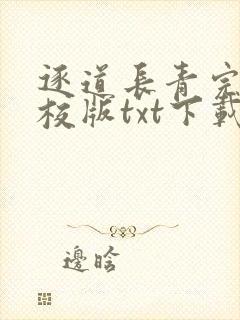 逐道長青完
校版txt下載
邊晗